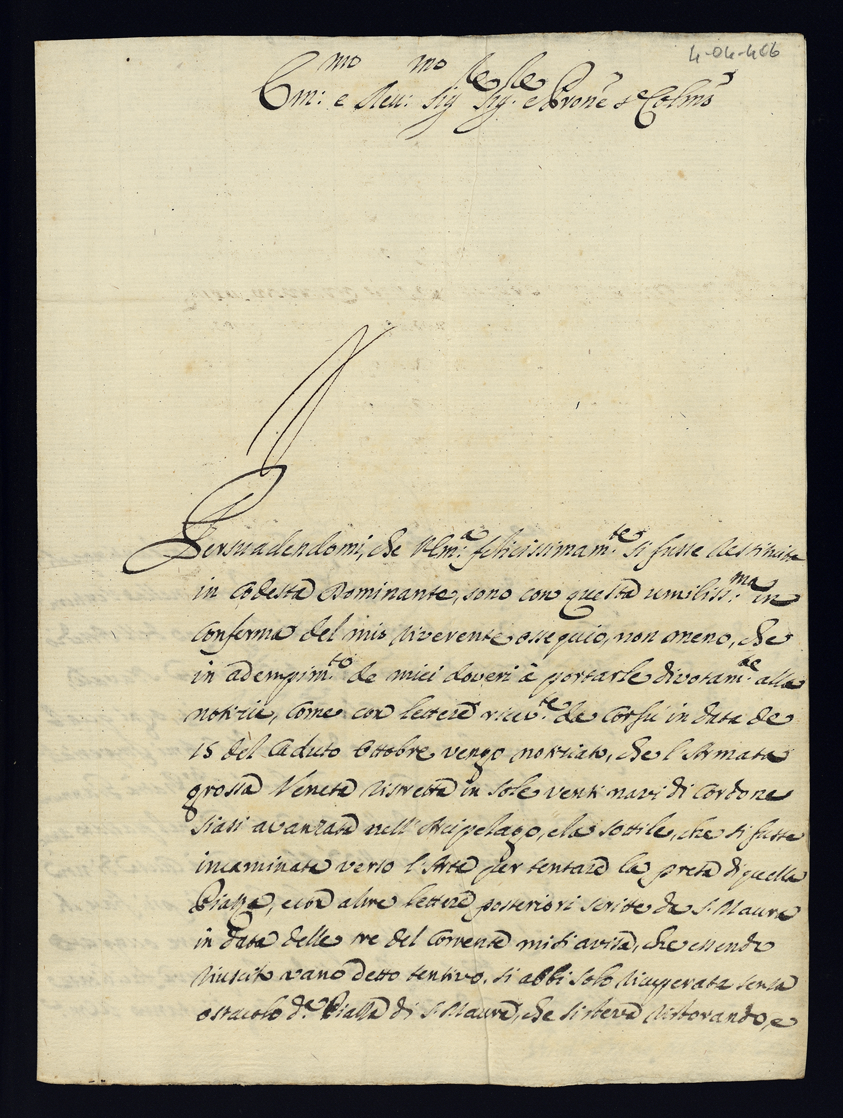 4-04-406
Em:mo e Reu:mo Sig.re Sig.re e Prone Colmo
Persuadendomi, che V. Em:a felicissimam:te si fusse restituita
in codesta Dominante, sono con questa umiliss:ma in
conferma del mio riverente ossequio, non meno, che
in adempim:to de miei doveri à portarle divotam:te alla
notitia, come con lettere ricev:te da Corfù in data de
15 del caduto Ottobre vengo notitiato, che l'Armata
grossa Veneta ristretta in sole venti navi di Cordone
siasi avanzata nell'Arcipelago, e la sottile, che si fusse
incaminata verso l'Arta per tentare la presa di quella
Piazza, e con altre lettere posteriori scritte da S. Maura
in data delle tre del corrente mi si avisa, che essendo
riuscito vano detto tentivo, si abbi solo ricuperata senza
ostacolo d:a Piazza di S. Maura, che si steva ristorando, e